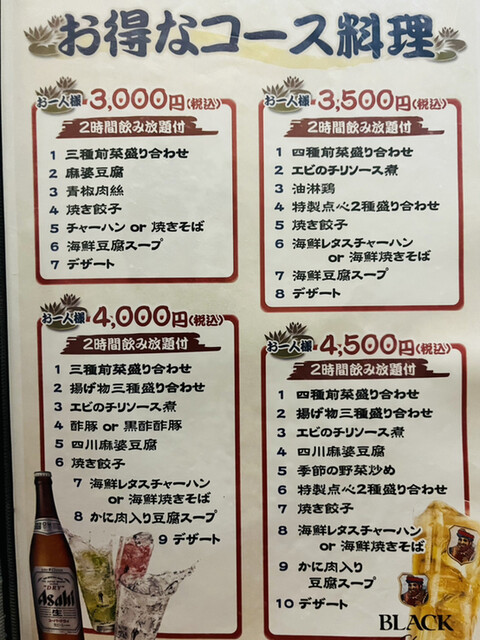 お得なコース料理
お一人様 3,000円(税込)
2時間飲み放題付
1 三種前菜盛り合わせ
2 麻婆豆腐
3 青椒肉絲
4 焼き餃子
5 チャーハン or 焼きそば
6 海鮮豆腐スープ
7 デザート
お一人様 3,500円(税込)
2時間飲み放題付
1 四種前菜盛り合わせ
2 エビのチリソース煮
3 油淋鶏
4 特製点心2種盛り合わせ
5 焼き餃子
6 海鮮レタスチャーハン
or 海鮮焼きそば
7 海鮮豆腐スープ
8 デザート
お一人様 4,000円(税込)
2時間飲み放題付
1 三種前菜盛り合わせ
2 揚げ物三種盛り合わせ
3 エビのチリソース煮
4 酢豚 or 黒酢酢豚
5 四川麻婆豆腐
6 焼き餃子
7 海鮮レタスチャーハン
or 海鮮焼きそば
8 かに肉入り豆腐スープ
9 デザート
お一人様 4,500円(税込)
2時間飲み放題付
1 四種前菜盛り合わせ
2 揚げ物三種盛り合わせ
3 エビのチリソース煮
4 四川麻婆豆腐
5 季節の野菜炒め
6 特製点心2種盛り合わせ
7 焼き餃子
8 海鮮レタスチャーハン
or 海鮮焼きそば
9 かに肉入り
豆腐スープ
10 デザート
Asahi
生
BLACK